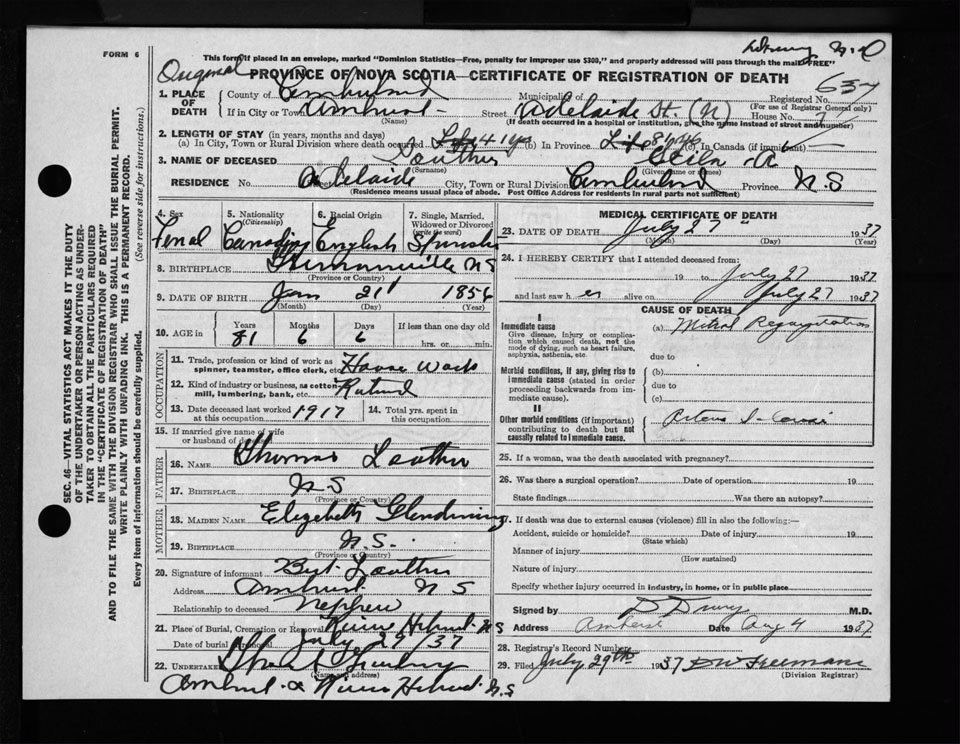 FORM 6
This form if placed in an envelope, marked "Dominion Statistics—Free, penalty for improper use $300," and properly addressed will pass through the mail "FREE"
Original
PROVINCE OF NOVA SCOTIA—CERTIFICATE OF REGISTRATION OF DEATH
637
1. PLACE OF DEATH
County of Cumberland Municipality of Registered No.
(For use of Registrar General only)
If in City or Town Amherst Street Adelaide St. (N) House No.
(Name) (If death occurred in a hospital or institution, give the name instead of street and number)
2. LENGTH OF STAY (in years, months and days)
(a) In City, Town or Rural Division where death occurred (b) In Province Life (c) In Canada (if immigrant)
3. NAME OF DECEASED Lowther
(Surname) (Given name or names)
RESIDENCE No. Street Adelaide City, Town or Rural Division Cumberland Province N.S
(Residence means usual place of abode. Post Office Address for residents in rural parts not sufficient)
4. Sex
5. Nationality (Citizenship)
6. Racial Origin
7. Single, Married, Widowed or Divorced (write the word)
Canadian English Spinster
8. BIRTHPLACE NS
(Province or Country)
9. DATE OF BIRTH Jan 21 1856
(Month) (Day) (Year)
10. AGE in Years Months Days If less than one day old
81 6 6 hrs. or min.
OCCUPATION
11. Trade, profession or kind of work as spinner, teamster, office clerk, etc. House Work
12. Kind of industry or business, as cotton mill, lumbering, bank, etc. Retired
13. Date deceased last worked at this occupation 1917
14. Total yrs. spent in this occupation
15. If married give name of wife or husband of deceased
FATHER
16. NAME Thomas Lowther
17. BIRTHPLACE N S
(Province or Country)
MOTHER
18. MAIDEN NAME Elizabeth Glendenning
19. BIRTHPLACE N.S.
(Province or Country)
20. Signature of informant Bert Lowther
Address Amherst N S
Relationship to deceased Nephew
21. Place of Burial, Cremation or Removal River Hebert N S
Date of burial or removal July 29 37
22. UNDERTAKER
(Name and address)
Amherst & River Hebert N.S
MEDICAL CERTIFICATE OF DEATH
23. DATE OF DEATH July 27 1937
(Month) (Day) (Year)
24. I HEREBY CERTIFY that I attended deceased from:
19 to July 27 1937
and last saw her alive on July 27 1937
CAUSE OF DEATH
I
Immediate cause
Give disease, injury or complication which caused death, not the mode of dying, such as heart failure, asphyxia, asthenia, etc.
(a) Mitral Regurgitation
due to
Morbid conditions, if any, giving rise to immediate cause (stated in order proceeding backwards from immediate cause).
(b)
due to
(c)
II
Other morbid conditions (if important) contributing to death but not causally related to immediate cause.
25. If a woman, was the death associated with pregnancy?
26. Was there a surgical operation? Date of operation 19
State findings Was there an autopsy?
27. If death was due to external causes (violence) fill in also the following:—
Accident, suicide or homicide? Date of injury 19
(State which)
Manner of injury
(How sustained)
Nature of injury
Specify whether injury occurred in industry, in home, or in public place
Signed by D Drury M.D.
Address Amherst Date Aug 4 1937
28. Registrar's Record Number
29. Filed July 29th 1937 Freeman
(Division Registrar)
SEC. 46—VITAL STATISTICS ACT MAKES IT THE DUTY
OF THE UNDERTAKER OR PERSON ACTING AS UNDERTAKER TO OBTAIN ALL THE PARTICULARS REQUIRED
IN THE "CERTIFICATE OF REGISTRATION OF DEATH"
AND TO FILE THE SAME WITH THE DIVISION REGISTRAR WHO SHALL ISSUE THE BURIAL PERMIT.
WRITE PLAINLY WITH UNFADING INK. THIS IS A PERMANENT RECORD.
Every item of information should be carefully supplied. (See reverse side for instructions.)